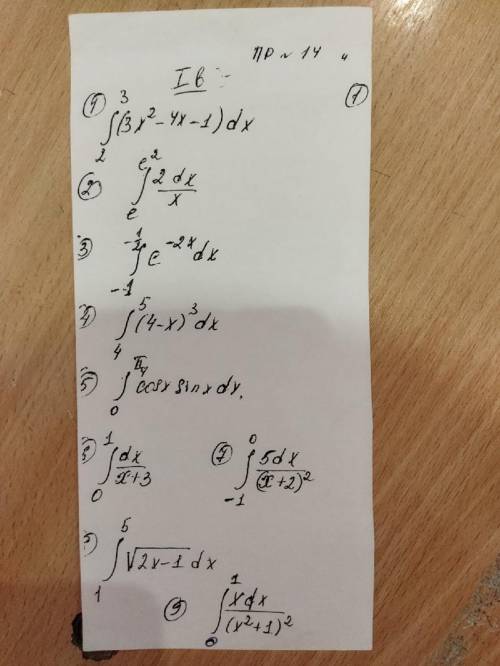 ПР № 14
I в
①
① ∫₂³ (3x² - 4x - 1) dx
② ∫ₑ^(e²) 2dx/x
3 ∫₋₁^(-1/2) e^(-2x) dx
4 ∫₄⁵ (4-x)³ dx
5 ∫₀^(π/4) cosx sinx dx.
6 ∫₀¹ dx/(x+3) ⑦ ∫₋₁⁰ 5dx/(x+2)²
∫₁⁵ √(2x-1) dx
⑨ ∫₀¹ xdx/(x²+1)²